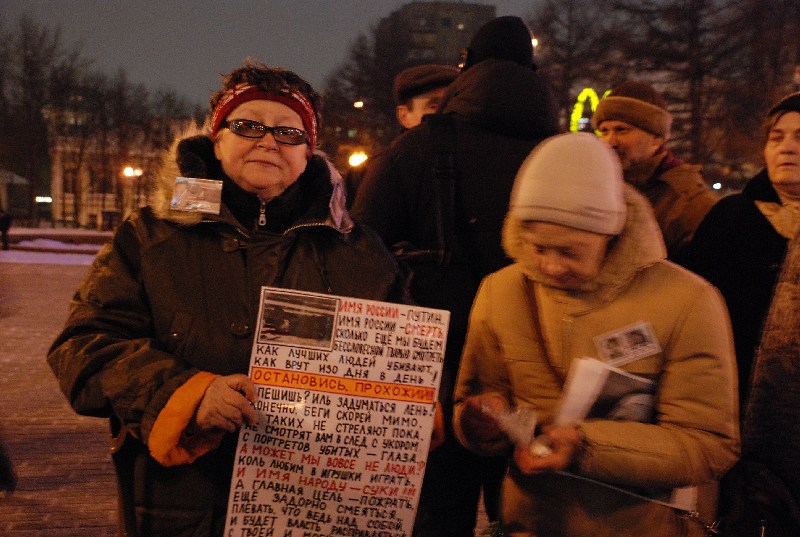 ИМЯ РОССИИ-ПУТИН.
ИМЯ РОССИИ-СМЕРТЬ
СКОЛЬКО ЕЩЁ МЫ БУДЕМ
БЕССЛОВЕСНОЙ ТВАРЬЮ СМОТРЕТЬ
КАК ЛУЧШИХ ЛЮДЕЙ УБИВАЮТ,
КАК ВРУТ ИЗО ДНЯ В ДЕНЬ!
ОСТАНОВИСЬ, ПРОХОЖИЙ!
СПЕШИШЬ? ИЛЬ ЗАДУМАТЬСЯ ЛЕНЬ!
КОНЕЧНО, БЕГИ СКОРЕЙ МИМО.
ТАКИХ НЕ СТРЕЛЯЮТ ПОКА.
СМОТРЯТ ВАМ В СЛЕД С УКОРОМ
С ПОРТРЕТОВ УБИТЫХ-ГЛАЗА.
А МОЖЕТ МЫ ВОВСЕ НЕ ЛЮДИ?
КОЛЬ ЛЮБИМ В ИГРУШКИ ИГРАТЬ,
И ИМЯ НАРОДУ-СУКИ
А ГЛАВНАЯ ЦЕЛЬ-ПОЖРАТЬ,
ЕЩЁ ЗАДОРНО СМЕЯТЬСЯ,
ПЛЕВАТЬ, ЧТО ВЕДЬ НАД СОБОЙ,
И БУДЕТ ВЛАСТЬ РАСПРАВЛЯТЬСЯ
С ТВОЕЙ И